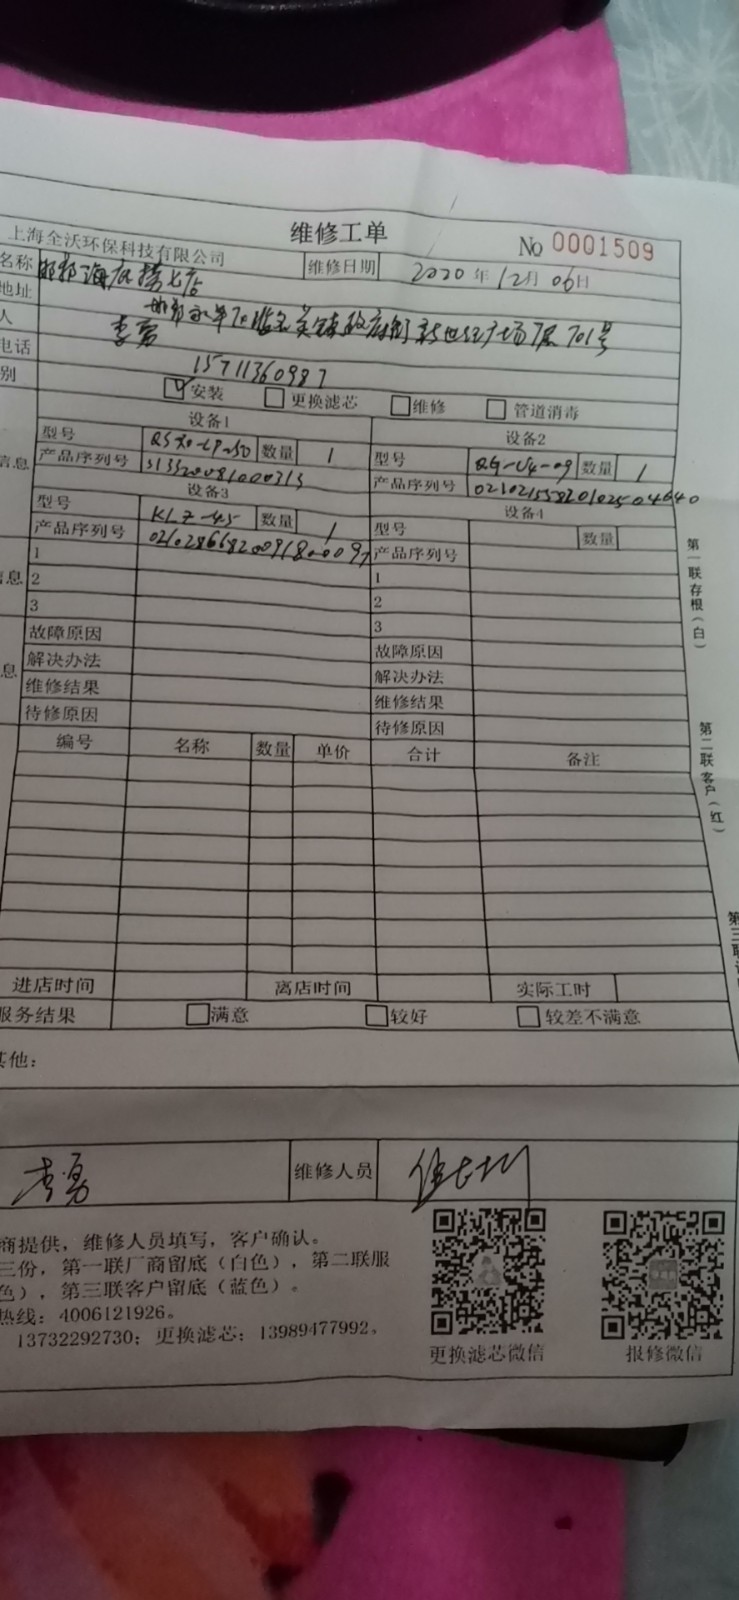 维修工单
No 0001509
上海全沃环保科技有限公司
名称
维修日期 2020年12月06日
地址
人 李勇
电话 15711360987
别 ☑安装 □更换滤芯 □维修 □管道消毒
设备1 设备2
型号 数量 1 型号 数量 1
信息 产品序列号 产品序列号
设备3 设备4
型号 KLZ-45 数量 1 型号 数量
产品序列号 产品序列号
信息 1 1
2 2
3 3
故障原因 故障原因
息 解决办法 解决办法
维修结果 维修结果
待修原因 待修原因
编号 名称 数量 单价 合计 备注
进店时间 离店时间 实际工时
服务结果 □满意 □较好 □较差不满意
其他：
李勇 维修人员
商提供，维修人员填写，客户确认。
三份，第一联厂商留底（白色），第二联服
色），第三联客户留底（蓝色）。
热线：4006121926。
13732292730；更换滤芯：13989477992。
更换滤芯微信 报修微信
第一联存根（白）
第二联客户（红）
第三联